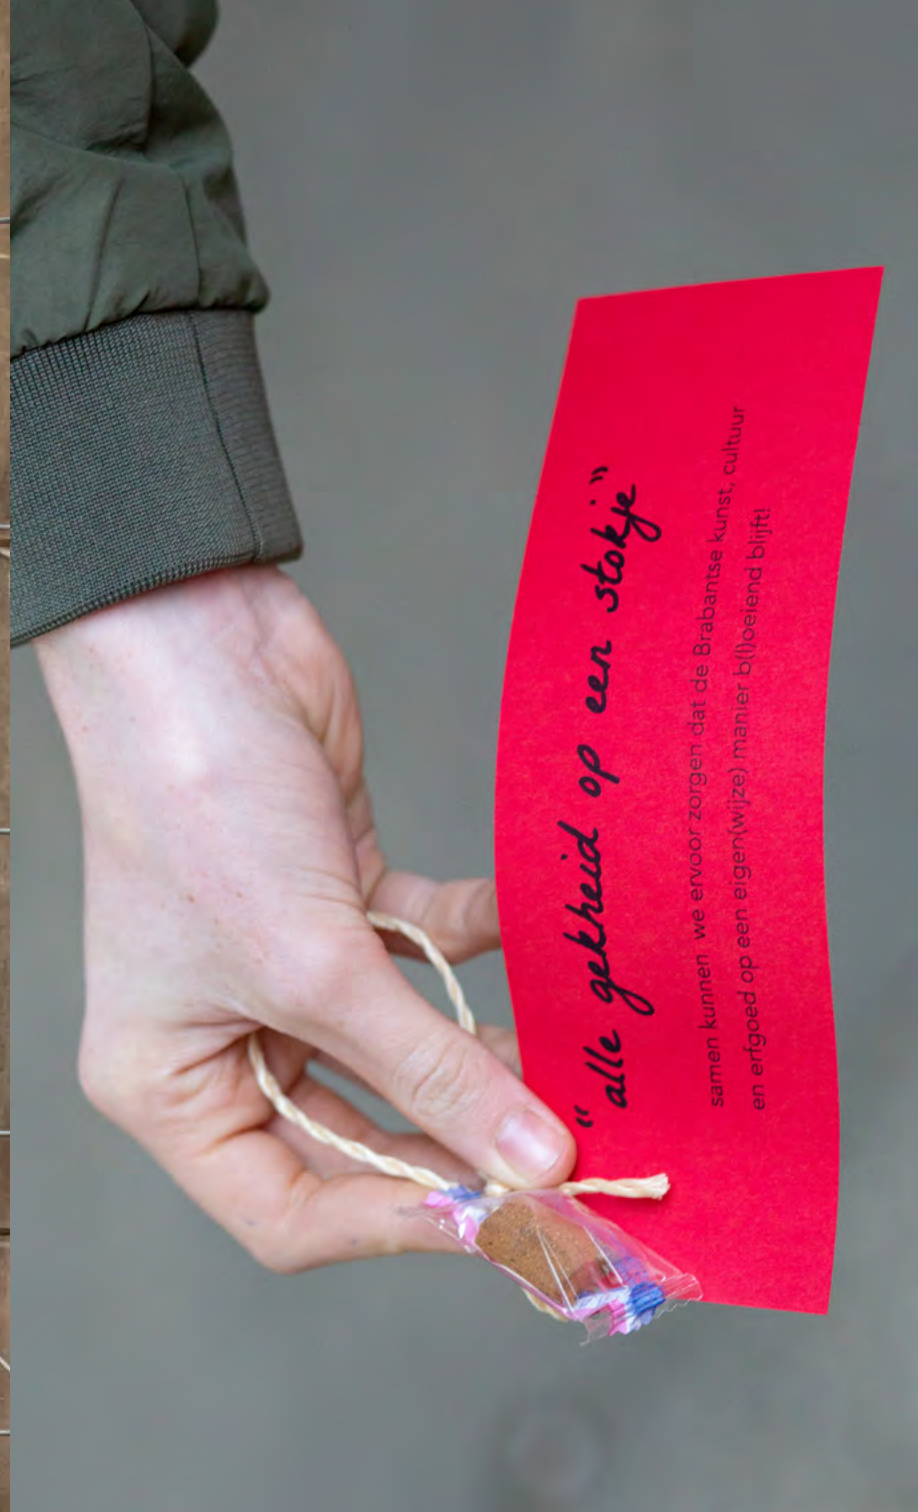 "alle gekheid op een stokje"
samen kunnen we ervoor zorgen dat de Brabantse kunst, cultuur
en erfgoed op een eigen(wijze) manier b(l)oeiend blijft!